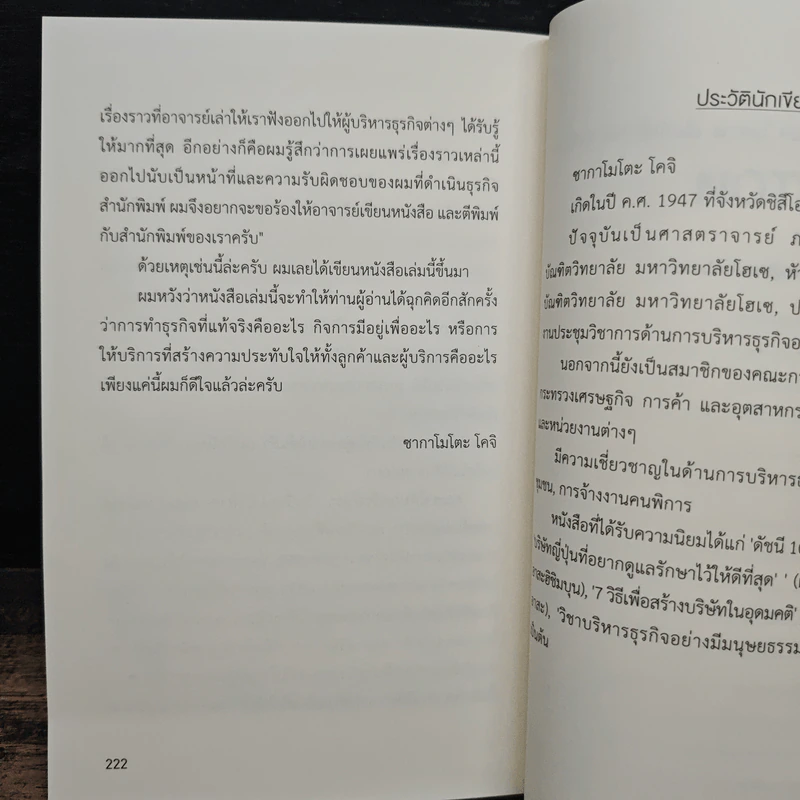 เรื่องราวที่อาจารย์เล่าให้เราฟังออกไปให้ผู้บริหารธุรกิจต่างๆ ได้รับรู้
ให้มากที่สุด อีกอย่างก็คือผมรู้สึกว่าการเผยแพร่เรื่องราวเหล่านี้
ออกไปนับเป็นหน้าที่และความรับผิดชอบของผมที่ดำเนินธุรกิจ
สำนักพิมพ์ ผมจึงอยากจะขอร้องให้อาจารย์เขียนหนังสือ และตีพิมพ์
กับสำนักพิมพ์ของเราครับ"
ด้วยเหตุเช่นนี้ล่ะครับ ผมเลยได้เขียนหนังสือเล่มนี้ขึ้นมา
ผมหวังว่าหนังสือเล่มนี้จะทำให้ท่านผู้อ่านได้ฉุกคิดอีกสักครั้ง
ว่าการทำธุรกิจที่แท้จริงคืออะไร กิจการมีอยู่เพื่ออะไร หรือการ
ให้บริการที่สร้างความประทับใจให้ทั้งลูกค้าและผู้บริการคืออะไร
เพียงแค่นี้ผมก็ดีใจแล้วล่ะครับ
ซากาโมโตะ โคจิ
222
ประวัตินักเขีย
ซากาโมโตะ โคจิ
เกิดในปี ค.ศ. 1947 ที่จังหวัดชิสึโอ
ปัจจุบันเป็นศาสตราจารย์ ภ
บัณฑิตวิทยาลัย มหาวิทยาลัยโฮเซ, หั
บัณฑิตวิทยาลัย มหาวิทยาลัยโฮเซ, ป
งานประชุมวิชาการด้านการบริหารธุรกิจอ
นอกจากนี้ยังเป็นสมาชิกของคณะก
กระทรวงเศรษฐกิจ การค้า และอุตสาหกร
และหน่วยงานต่างๆ
มีความเชี่ยวชาญในด้านการบริหารธ
ชุมชน, การจ้างงานคนพิการ
หนังสือที่ได้รับความนิยมได้แก่ 'ดัชนี 1
บริษัทญี่ปุ่นที่อยากดูแลรักษาไว้ให้ดีที่สุด' '
าสะฮิชิมบุน), '7 วิธีเพื่อสร้างบริษัทในอุดมคติ'
าสะ), 'วิชาบริหารธุรกิจอย่างมีมนุษยธรรม
เป็นต้น